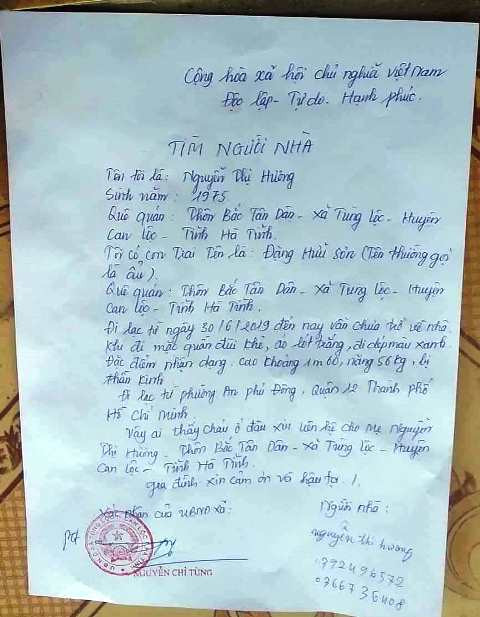 Cộng hòa xã hội chủ nghĩa việt Nam
Độc lập - Tự do - Hạnh phúc.
TÌM NGƯỜI NHÀ
Tên tôi là: Nguyễn Thị Hương
Sinh năm: 1975
Quê quán: Thôn Bắc Tân Dân - xã Tùng lộc - Huyện
Can Lộc - Tỉnh Hà Tĩnh.
Tôi có con Trai Tên là: Đặng Hữu Sơn (Tên thường gọi
là ấu).
Quê quán: Thôn Bắc Tân Dân - xã Tùng lộc - Huyện
Can lộc - Tỉnh Hà Tĩnh.
Đi lạc từ ngày 30/6/2019 đến nay vẫn chưa trở về nhà.
Khi đi mặc quần đùi khẻ, áo lót trắng, đi dép màu xanh.
Đặc điểm nhận dạng: cao khoảng 1m60, nặng 56kg, bị
thần kinh
Đi lạc từ phường An phú Đông, Quận 12 Thành phố
Hồ Chí Minh.
Vậy ai thấy cháu ở đâu xin liên hệ cho Mẹ Nguyễn
Thị Hương - Thôn Bắc Tân Dân - xã Tùng lộc - Huyện
Can lộc - Tỉnh Hà Tĩnh.
gia đình xin cảm ơn và hậu tạ /.
Xác nhận của UBND xã:
Người nhà:
NGUYỄN CHÍ TÙNG
nguyễn thị hương
0366736408